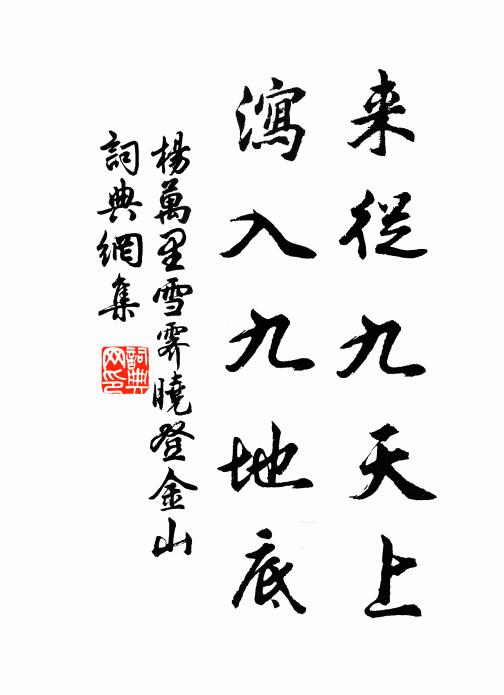 来從九天上
瀉入九地底
楊萬里雪霽曉登金山
詞典網集
詞典网印